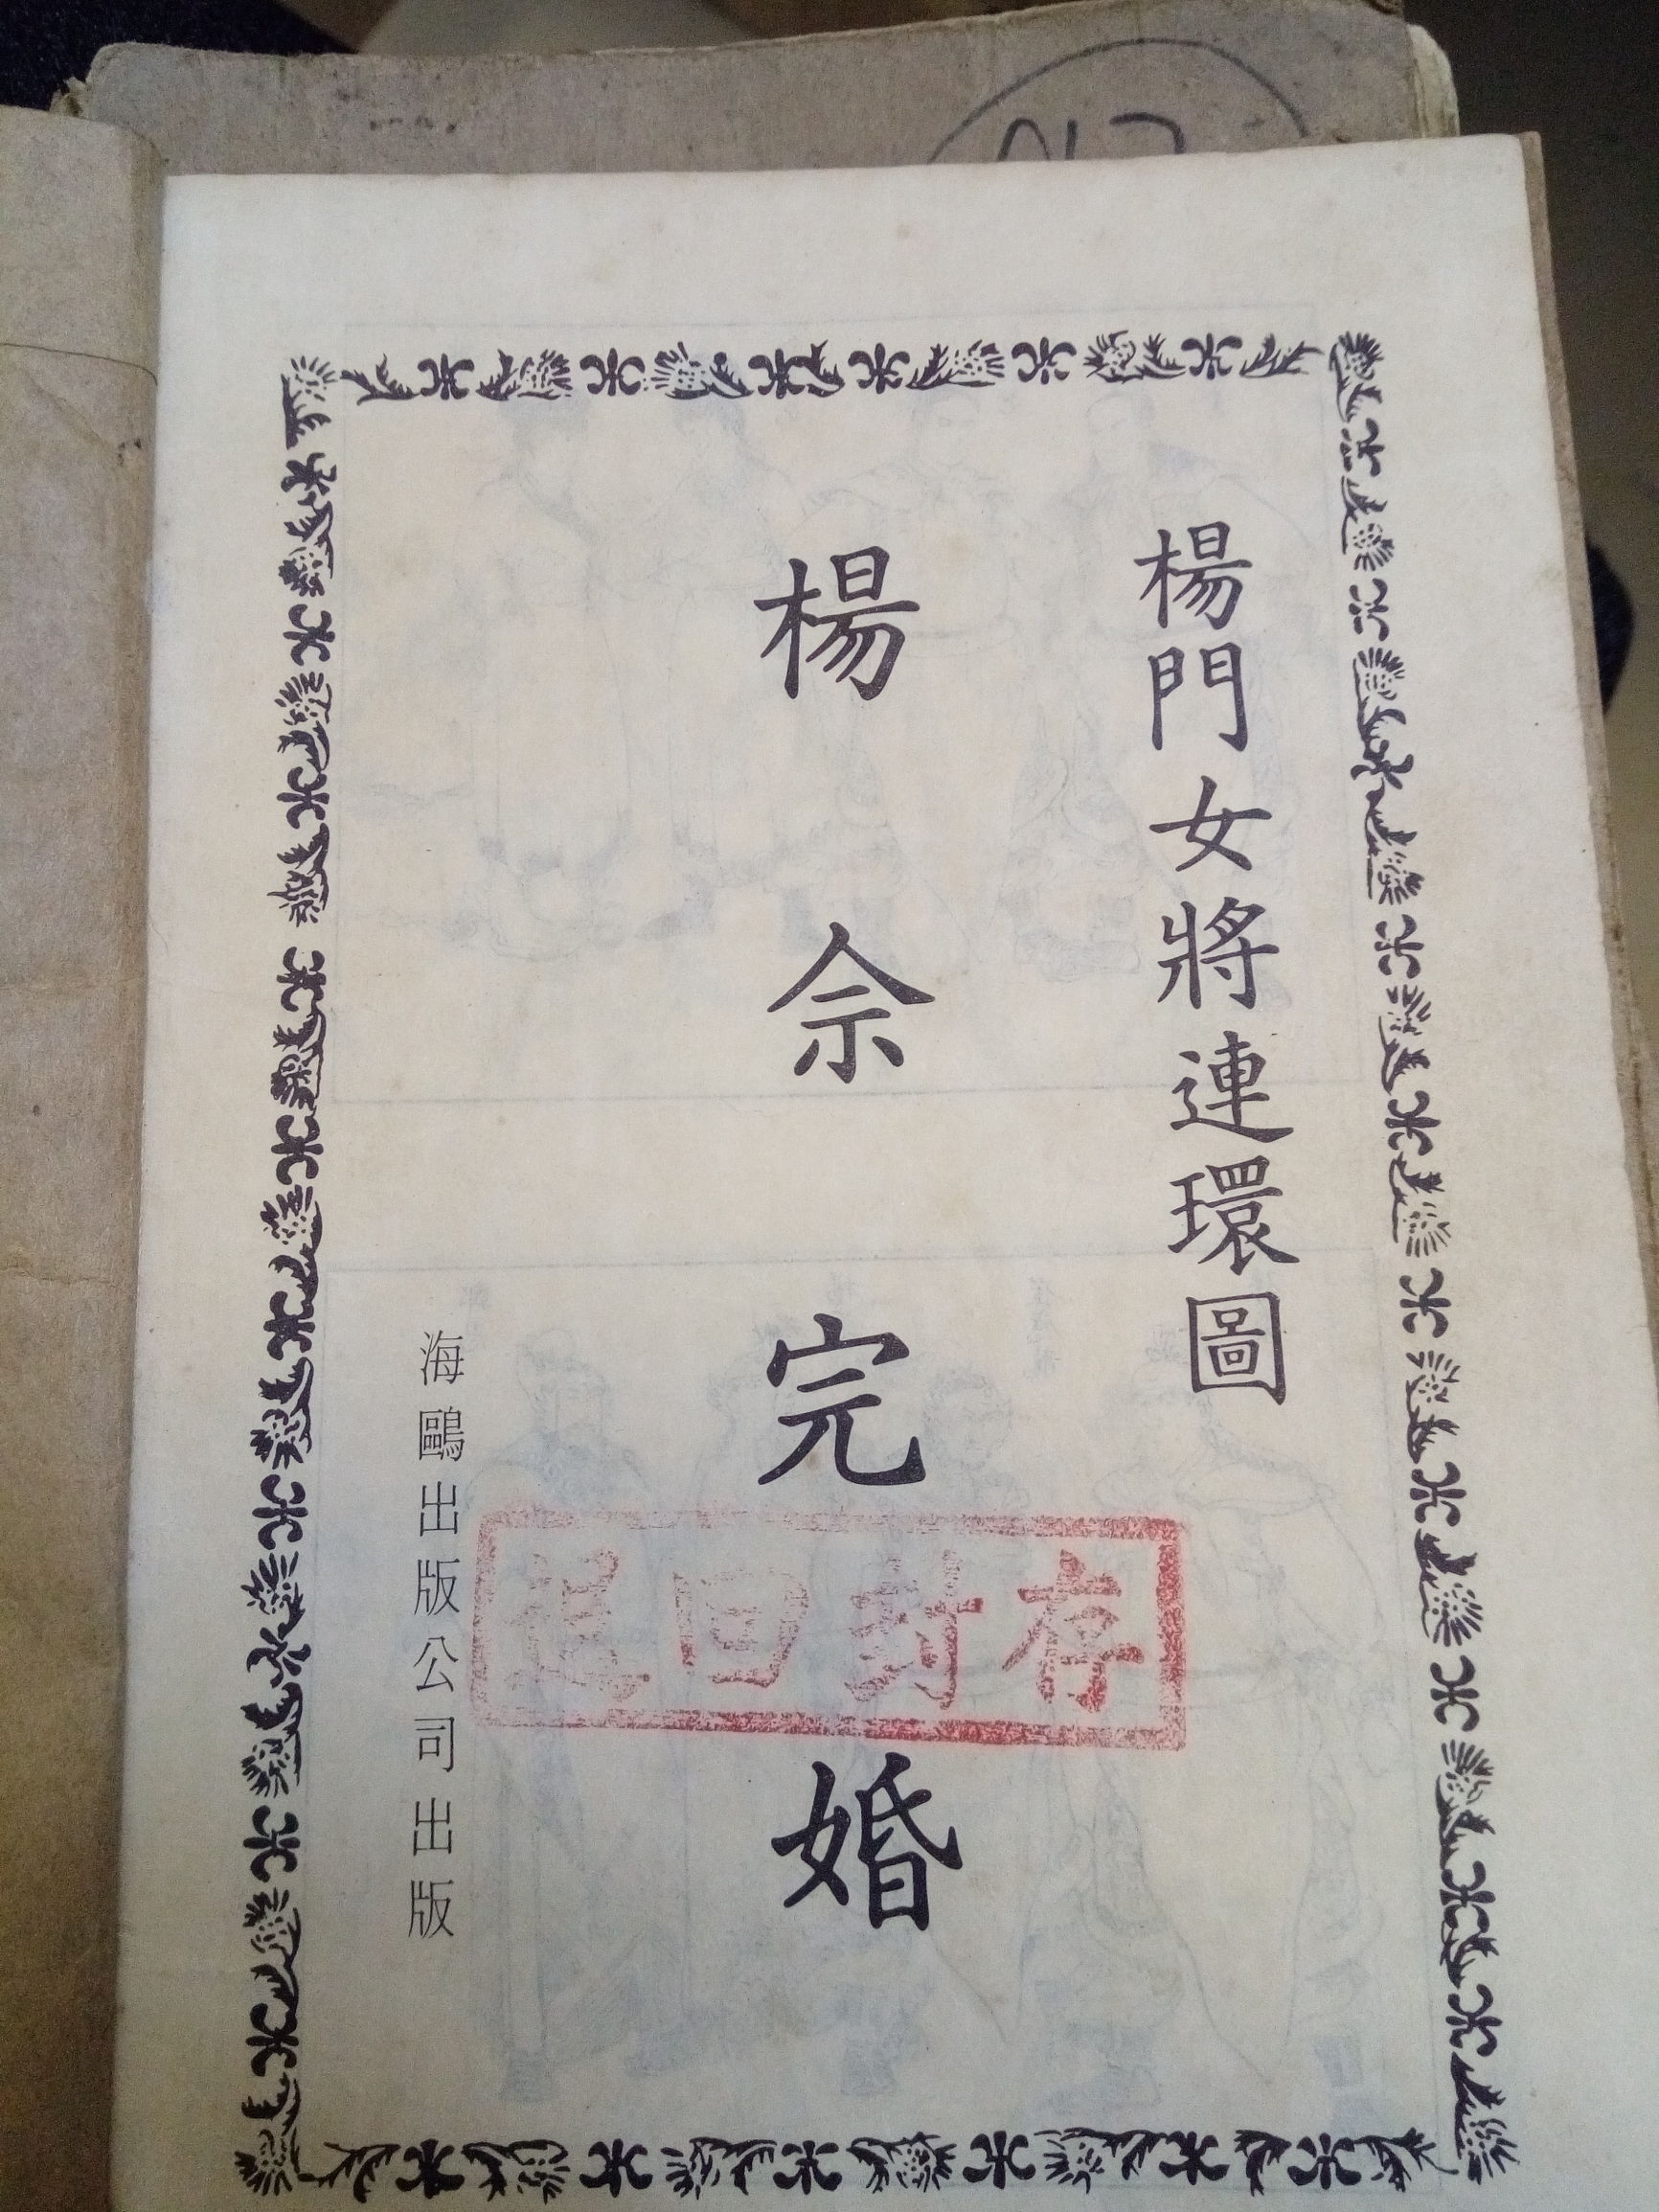 楊門女將連環圖
楊佘完婚
退回封存
海鷗出版公司出版